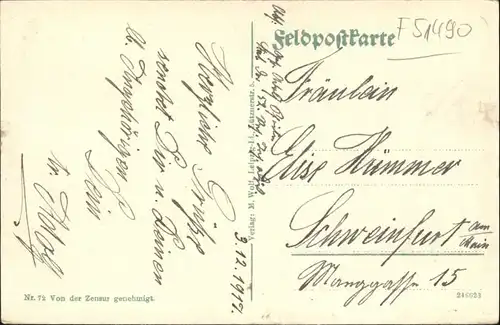 Feldpostkarte
F51490
Fräulein
Elise Hümmer
Schweinfurt am Main
Manggasse 15
Herzliche Grüße
sendet Dir u. Deinen
Angehörigen
Dein
Adolf
9.12.1917.
Verlag: M. Wolf, Leipzig
Nr. 72 Von der Zensur genehmigt.